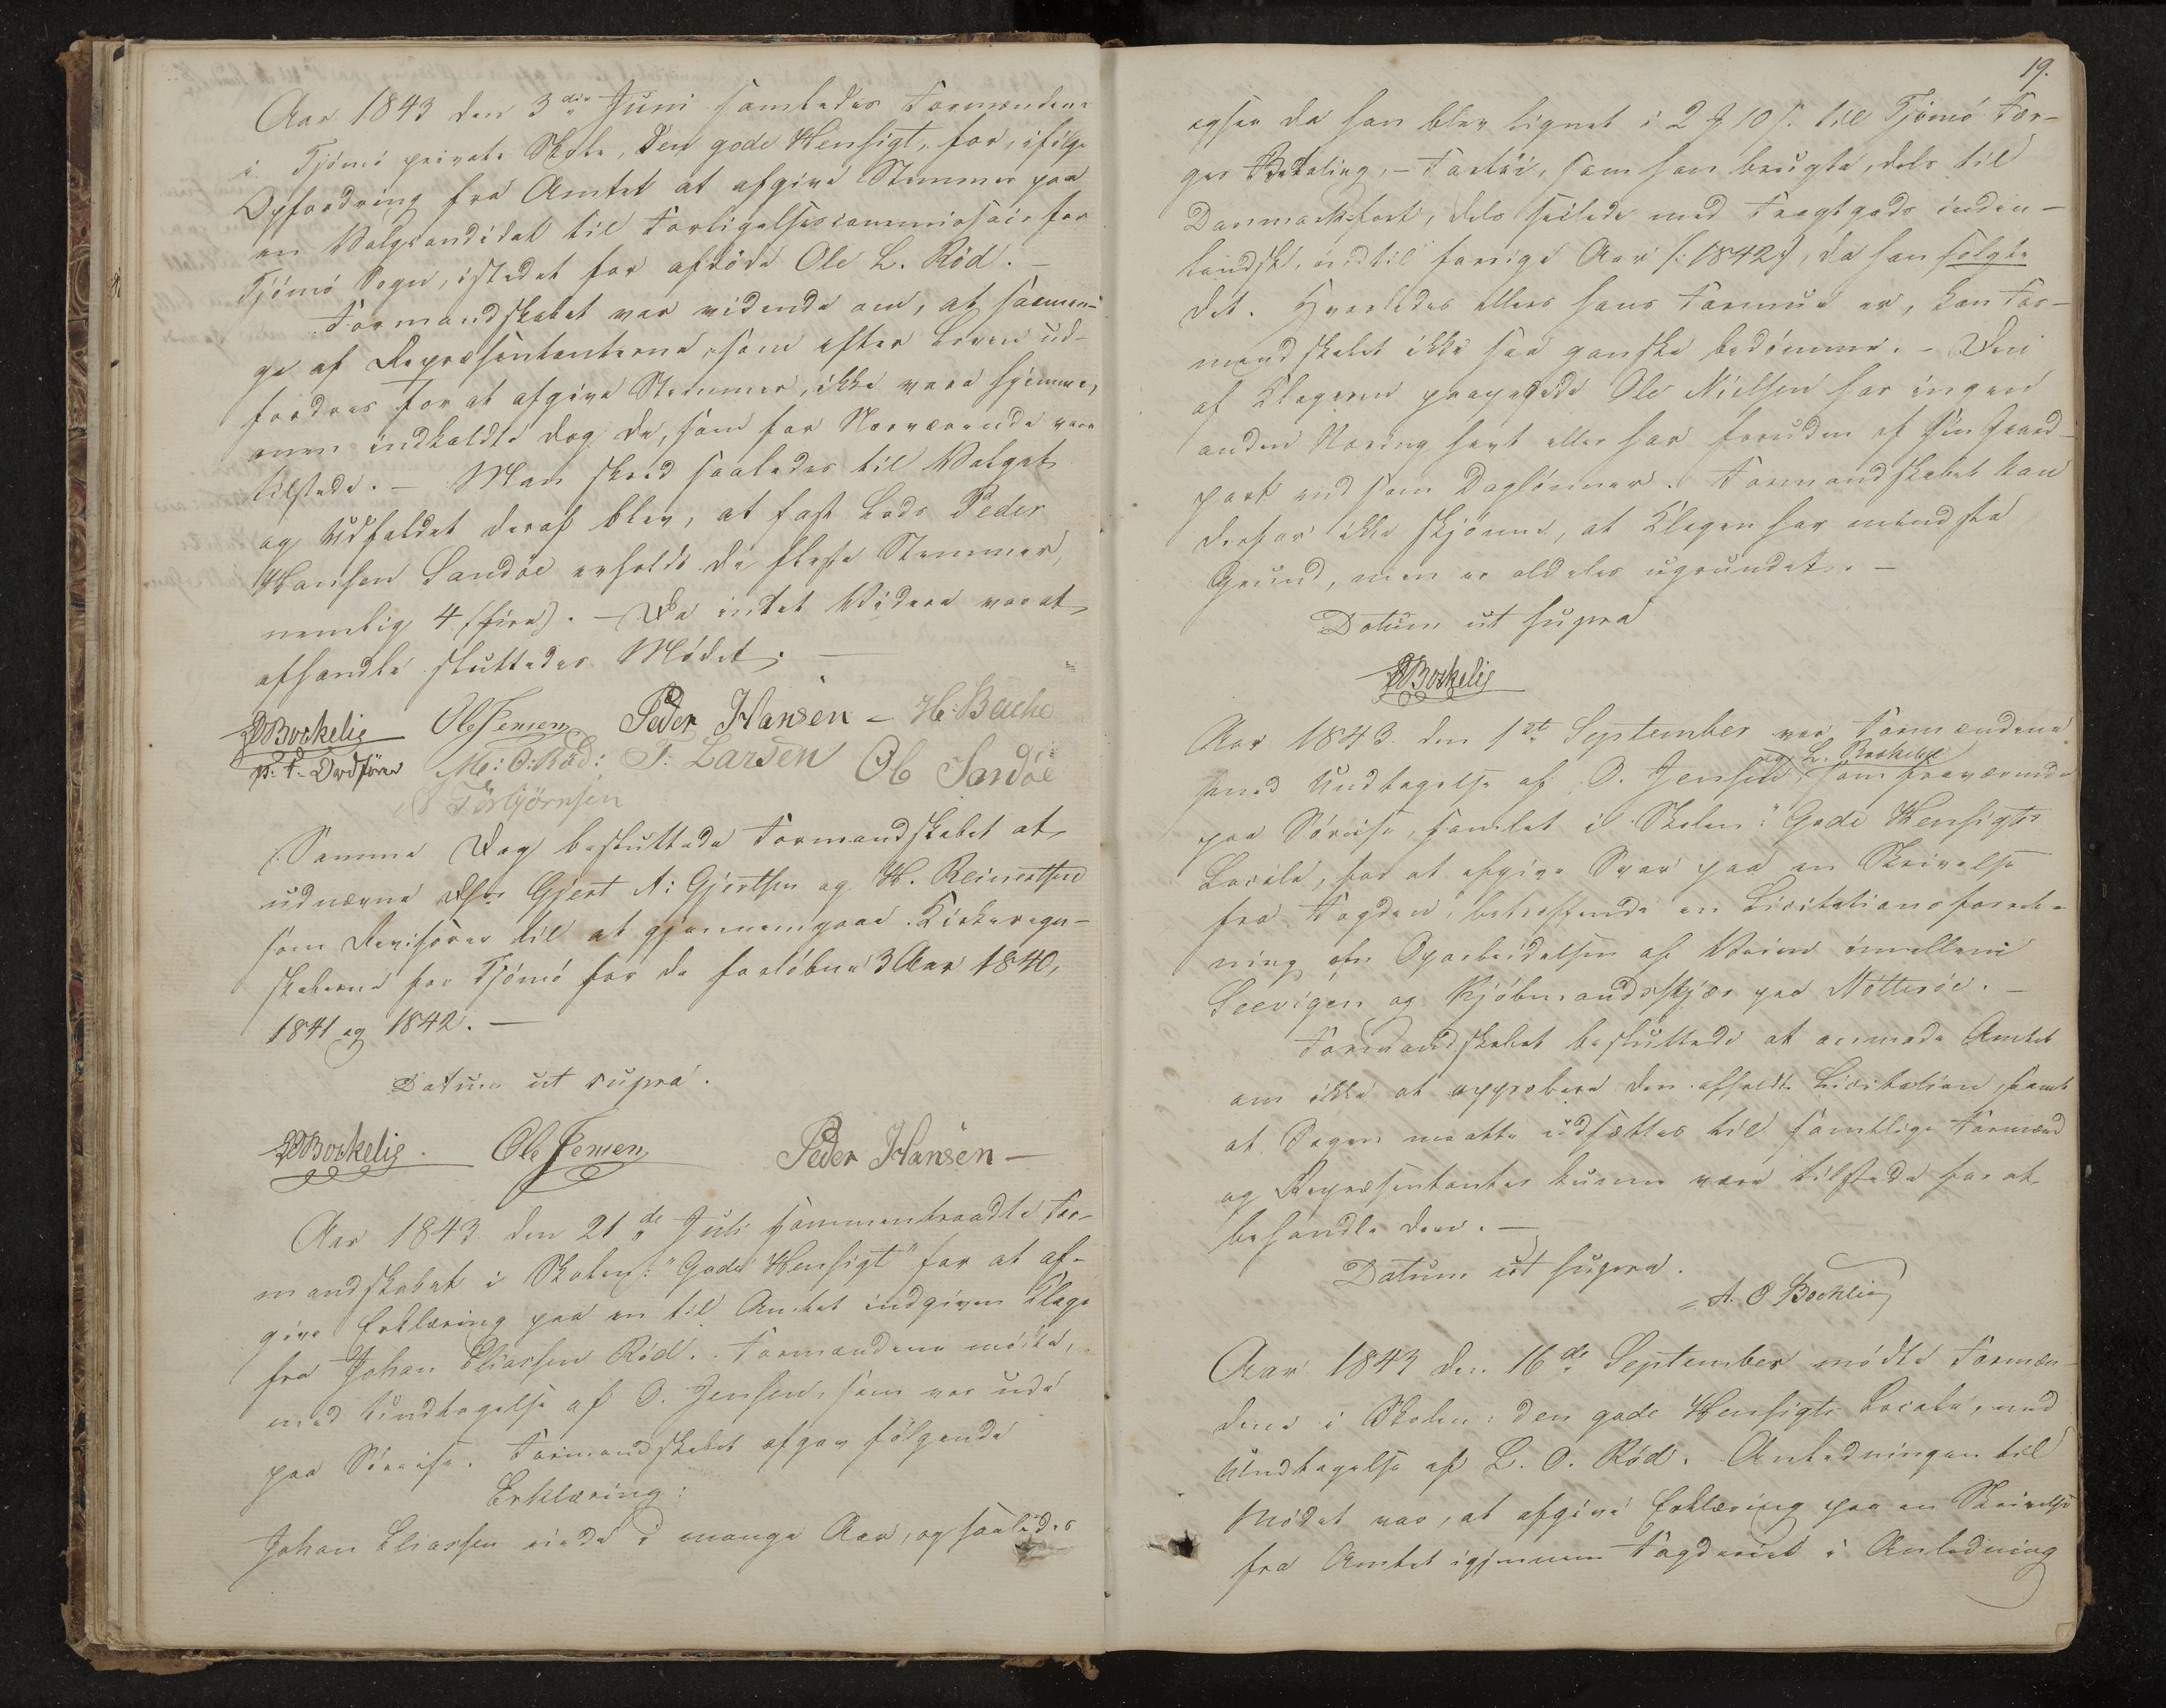 Aar 1843 den 3die Juni samledes Formændene
i Tjömö private Skole, den gode Hensigt, for, ifölge
Opfordring fra Amtet at afgive Stemmer paa
en Valgcandidat til Forligelsescommissair for
Tjömö Sogn, istedet for afdöde Ole L. Röd. —
Formandskabet var vidende om, at
ge af Repræsentanterne, som efter Loven ud-
fordres for at afgive Stemmer, ikke vare hjemme,
men indkaldte dog de, som for Nærværende vare
tilstede. — Man skred saaledes til Valget
og Udfaldet deraf blev, at fast Lods Peder
Hansen Sandöe erholdt de fleste Stemmer,
nemlig 4 (fire). — Da intet Videre var at
afhandle sluttedes Mödet. —
Borkelig Ole Jensen Peder Hansen — H. Bache
p. t. Ordförer M: O: Röd: T: Larsen Ole Sandöe
Torbjörnsen
Samme Dag besluttede Formandskabet at
udnævne Gjert A: Gjertsen og H. Reinertsen
som Revisorer til at gjennemgaae Kirkeregn-
skaberne for Tjömö for de forlöbne 3 Aar 1840,
1841 og 1842. —
Datum ut supra.
Borkelig. Ole Jensen Peder Hansen —
Aar 1843 den 21de Juli sammentraadte For-
mandskabet i Skolen: "Gode Hensigt" for at af-
give Erklæring paa en til Amtet indgiven Klage
fra Johan Eliassen Röd. Formændene mödte,
med Undtagelse af O. Jensen, som var ude
paa Söreise. Formandskabet afgav fölgende
Erklæring:
Johan Eliassen eiede i mange Aar, og saaledes
19.
ogsaa da han blev lignet i 2 10 s. til Tjömö Fær-
ges Betaling, — Fartöi, som han brugte, dels til
Danmarksfart, dels seilede med Fragtgods inden-
landsk, indtil forrige Aar /: 1842 :/, da han solgte
det. Hvorledes ellers hans Formue er, kan For-
mandskabet ikke saa ganske bedömme. — Den
af Klageren paapegede Ole Nielsen har ingen
anden Næring havt eller har foruden af sin Gaard-
part end som Daglönner. Formandskabet kan
derfor ikke skjönne, at Klagen har mindste
Grund, men er aldeles ugrundet. —
Datum ut supra
Borkelig
Aar 1843 den 1ste September var Formændene
og L. Borkelig
med Undtagelse af O. Jensen, som fraværende
paa Söreise, samlet i Skolen: "Gode Hensigts
Locale, for at afgive Svar paa en Skrivelse
fra Fogden, betræffende en Licitationsforret-
ning om Oparbeidelsen af Veien imellem
Seevigen og Kjöbmandsskjær paa Nötteröe. —
Formandskabet besluttede at anmode Amtet
om ikke at approbere den afholdte Licitation, samt
at Sagen maatte udsættes til samtlige Formænd
og Repræsentanter kunne være tilstede for at
behandle den. —
Datum ut supra.
A. O Borkelig
Aar 1843 den 16de September mödte Formæn-
dene i Skolen: den gode Hensigts Locale, med
Undtagelse af L. O. Röd. Anledningen til
Mödet var, at afgive Erklæring paa en Skrivelse
fra Amtet igjennem Fogderiet i Anledning